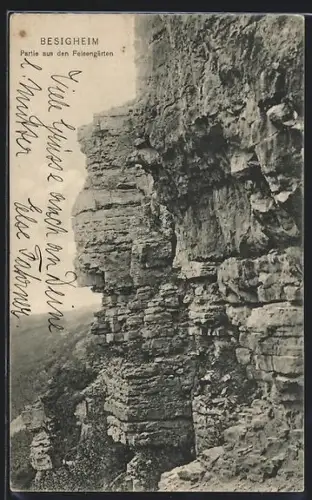 BESIGHEIM
Partie aus den Felsengärten
Viele Grüsse auch an Deine
l. Mutter. Else